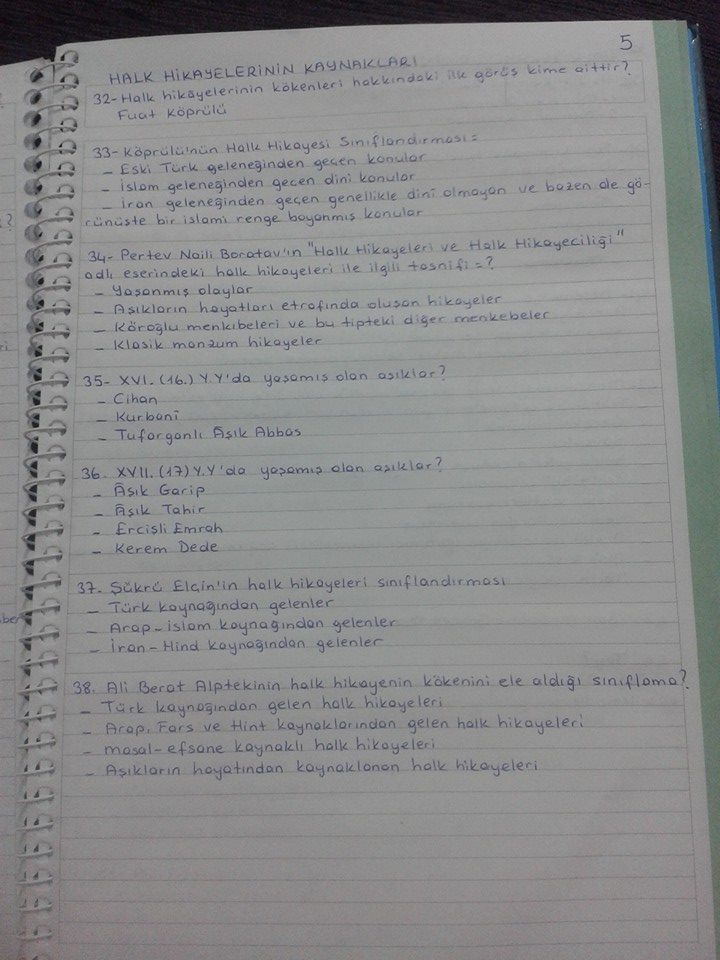 5
HALK HİKAYELERİNİN KAYNAKLARI
32- Halk hikâyelerinin kökenleri hakkındaki ilk görüş kime aittir?
Fuat Köprülü
33- Köprülü'nün Halk Hikayesi Sınıflandırması =
- Eski Türk geleneğinden geçen konular
- İslam geleneğinden geçen dini konular
- İran geleneğinden geçen genellikle dini olmayan ve bazen de gö-
rünüşte bir islami renge boyanmış konular
34- Pertev Naili Boratav'ın "Halk Hikayeleri ve Halk Hikayeciliği"
adlı eserindeki halk hikayeleri ile ilgili tasnifi = ?
- Yaşanmış olaylar
- Aşıkların hayatları etrafında oluşan hikayeler
- Köroğlu menkıbeleri ve bu tipteki diğer menkebeler
- Klasik manzum hikayeler
35- XVI. (16.) Y.Y'da yaşamış olan aşıklar?
- Cihan
- Kurbanî
- Tuforganlı Âşık Abbas
36. XVII. (17) Y.Y'da yaşamış olan aşıklar?
- Âşık Garip
- Âşık Tahir
- Ercişli Emrah
- Kerem Dede
37. Şükrü Elçin'in halk hikayeleri sınıflandırması
- Türk kaynağından gelenler
- Arap-islam kaynağından gelenler
- İran-Hind kaynağından gelenler
38. Ali Berat Alptekinin halk hikayenin kökenini ele aldığı sınıflama?
- Türk kaynağından gelen halk hikayeleri
- Arap, Fars ve Hint kaynaklarından gelen halk hikayeleri
- masal-efsane kaynaklı halk hikayeleri
- Aşıkların hayatından kaynaklanan halk hikayeleri